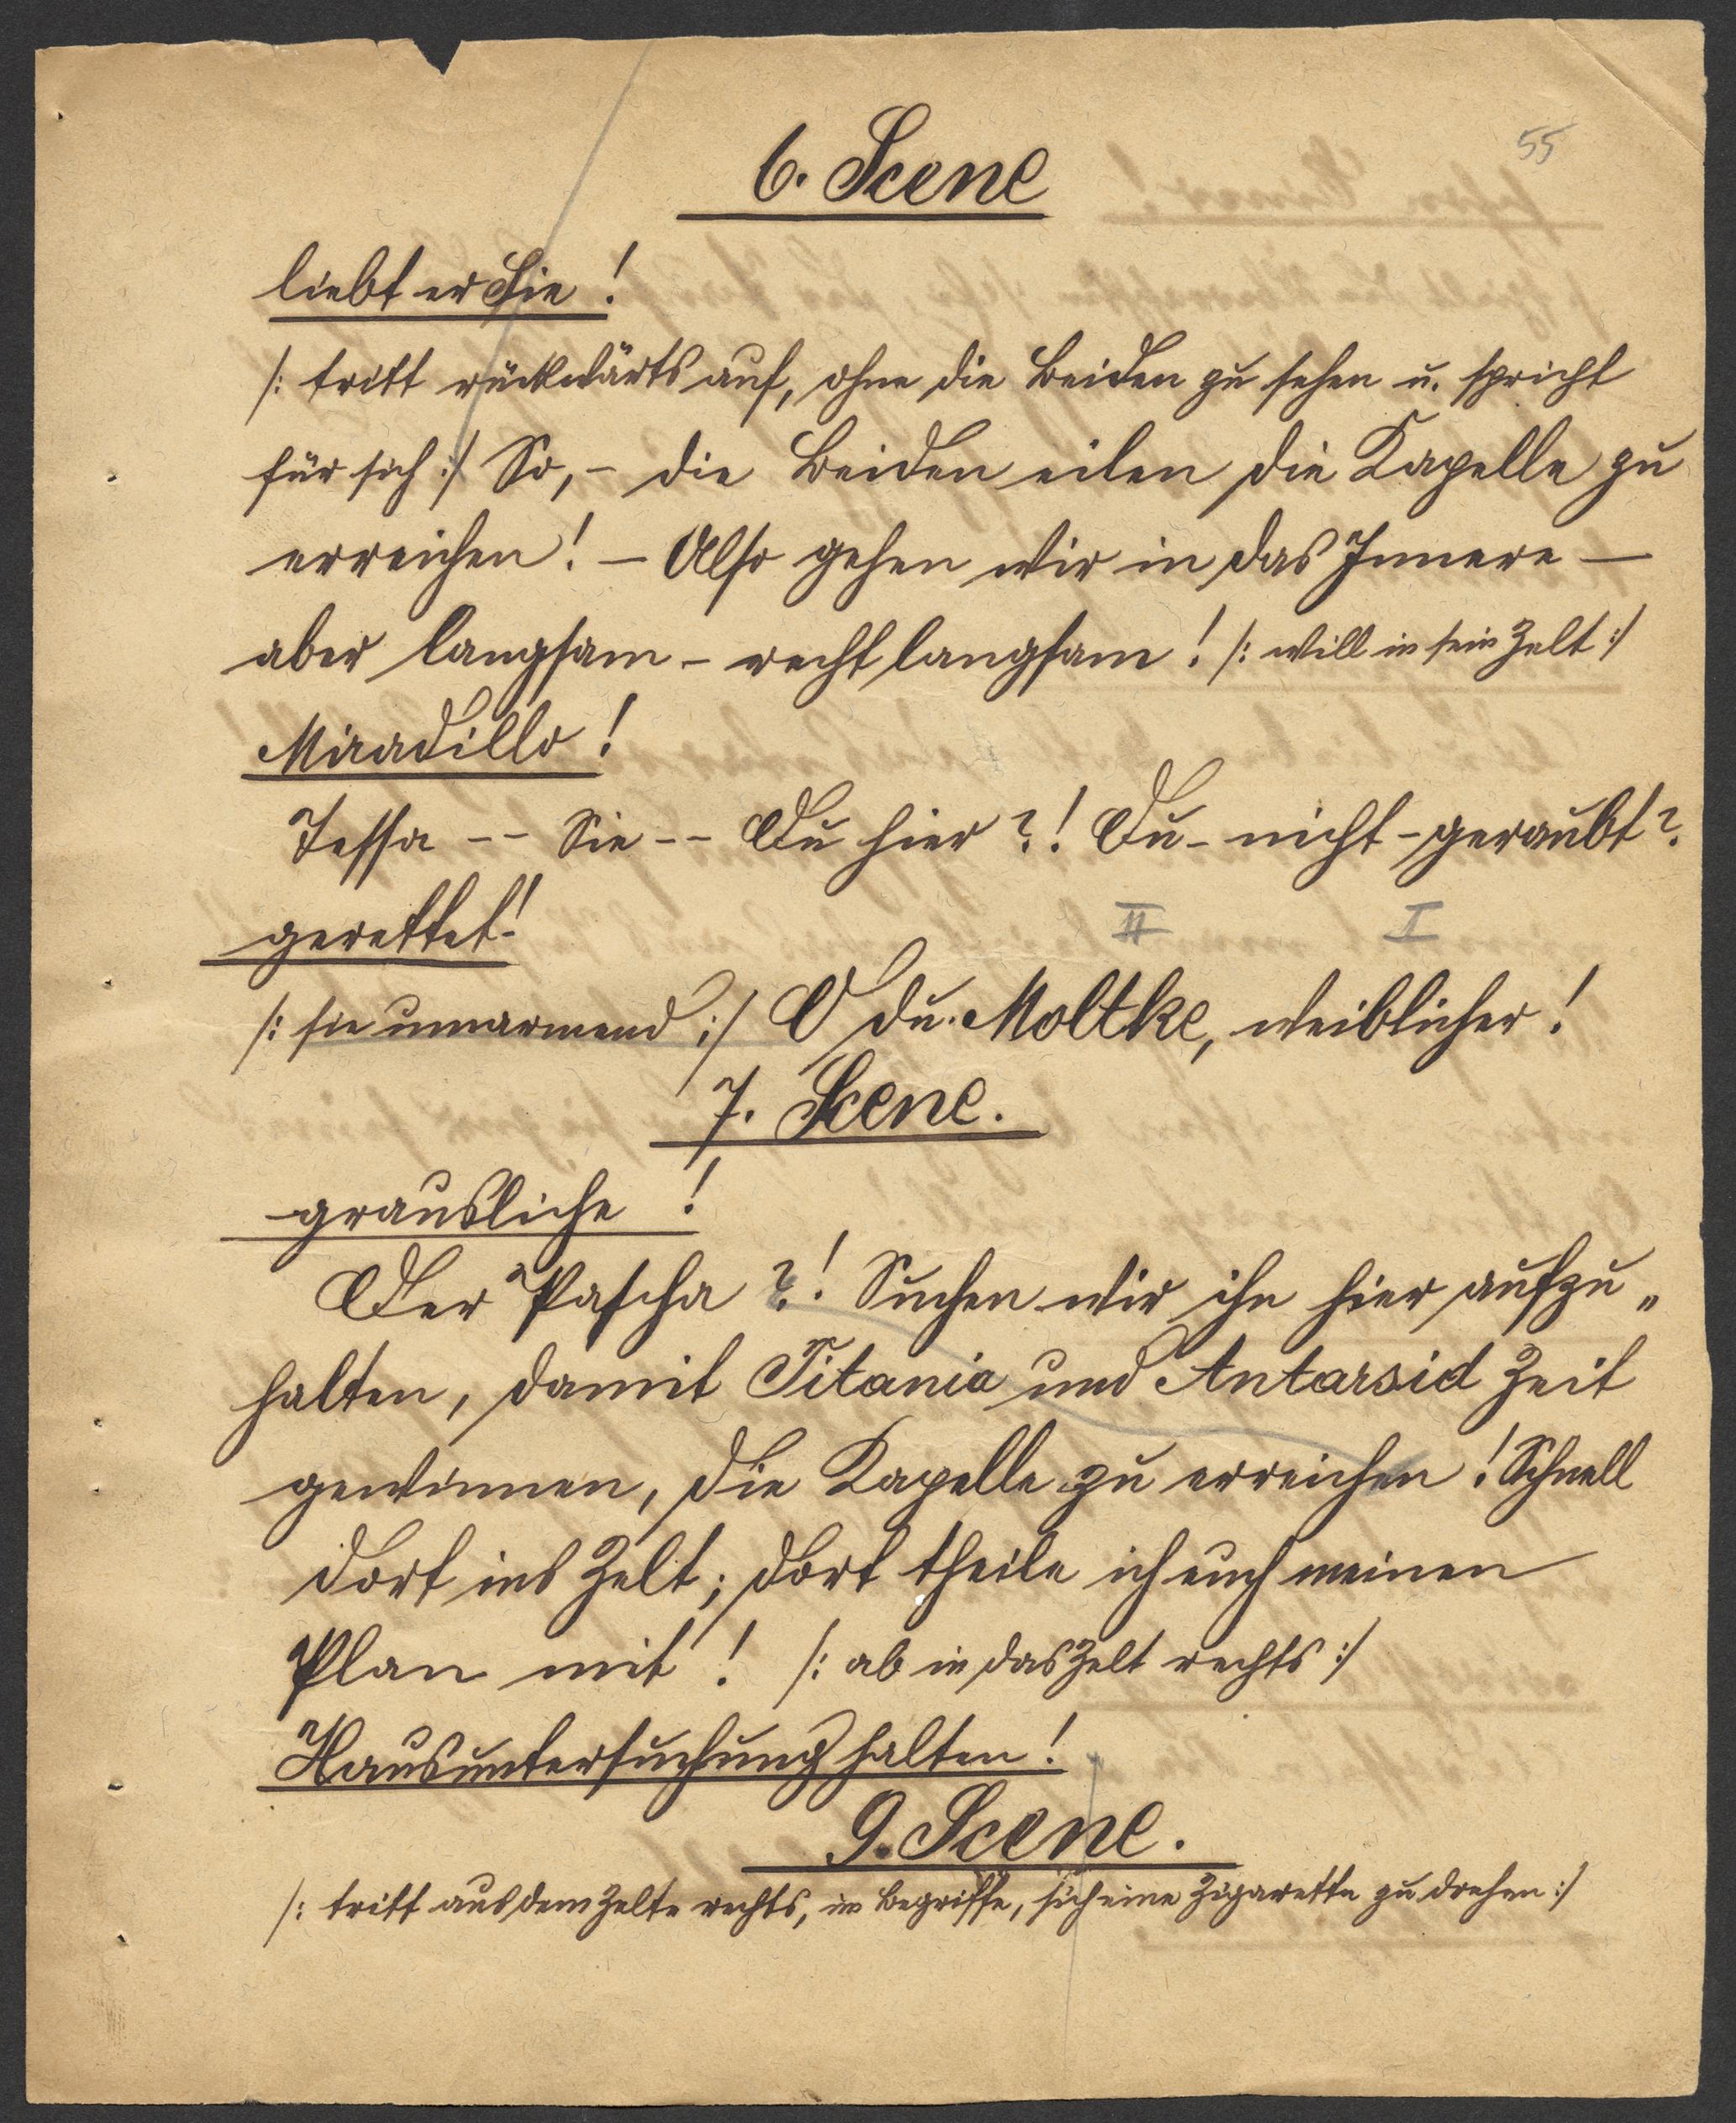 55
6. Scene
liebt er Sie!
/: tritt rückwärts auf, ohne die Beiden zu sehen u. spricht
für sich :/ So, – die Beiden eilen die Kapelle zu
erreichen! – Also gehen wir in das Innere –
aber langsam – recht langsam! /: will in sein Zelt :/
Miradillo!
Tessa -- Sie -- Du hier?! Du – nicht – geraubt?
gerettet!
II I
/: sie umarmend :/ O du Moltke, weiblicher!
7. Scene.
grausliche!
Der Pascha?! Suchen wir ihn hier aufzu„
halten, damit Titania und Antarsid Zeit
gewinnen, die Kapelle zu erreichen! Schnell
dort ins Zelt; dort theile ich euch meinen
Plan mit! /: ab in das Zelt rechts :/
Hausuntersuchung halten!
9. Scene.
/: tritt aus dem Zelte rechts, im Begriffe, sich eine Zigarette zu drehen :/